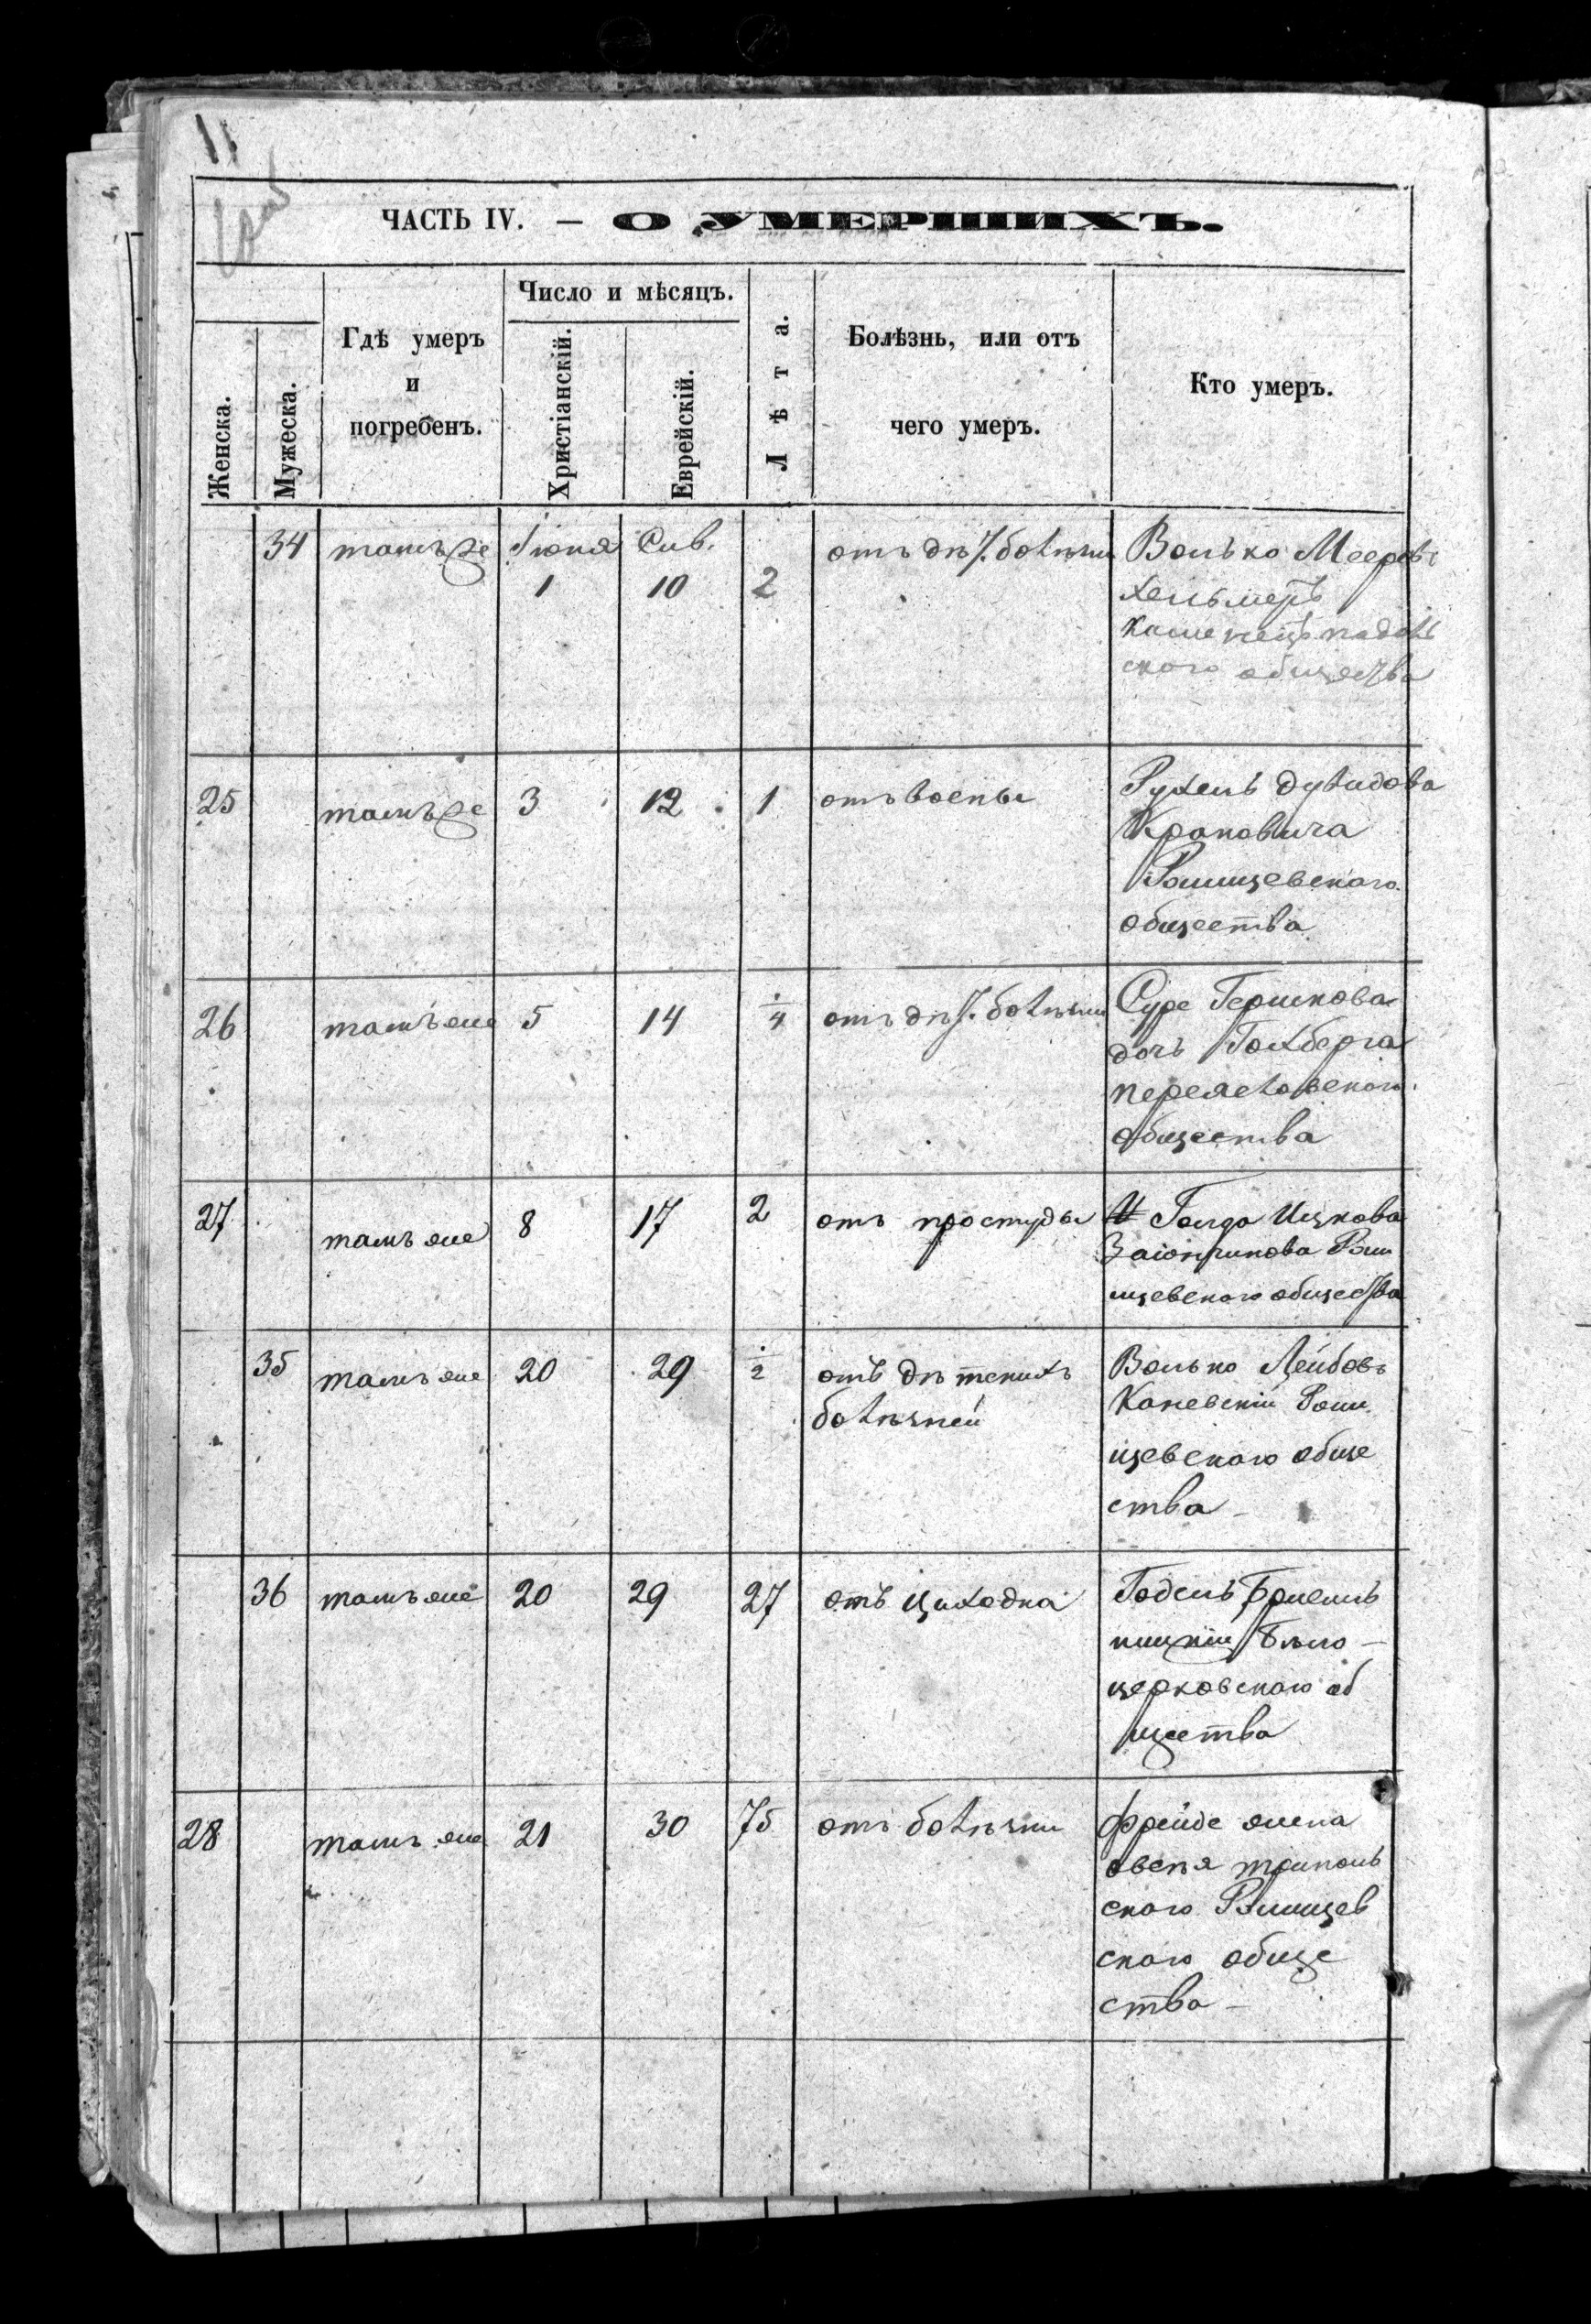 11
ЧАСТЬ IV. — О УМЕРШИХЪ.
Женска.
Мужеска.
Гдѣ умеръ
и
погребенъ.
Число и мѣсяцъ.
Христіанскій.
Еврейскій.
Лѣта.
Болѣзнь, или отъ
чего умеръ.
Кто умеръ.
34 тамъже Іюня Сив. отъ дѣт. болѣзни Волько Мееровъ
1 10 2
общества
25 тамъже 3 12 1 отъ воспы Рухель Дувидова
Крановича
Ржищевскаго
общества
26 тамъ же 5 14 1/4 отъ дѣт. болѣзни Суре Гершкова
дочь Гохберга
переяславскаго
общества
27 тамъ же 8 17 2 отъ простуды Голда Ицкова
Заіончикова Ржи
щевскаго общества
35 тамъ же 20 29 1/2 отъ дѣтскихъ Волько Лейбовъ
болѣзней Каневскій Ржи
щевскаго обще
ства
36 тамъ же 20 29 27 отъ Годель
Бѣло
церковскаго об
щества
28 тамъ же 21 30 75 отъ болѣзни Фрейде жена
овсея триполь
скаго Ржищев
скаго обще
ства